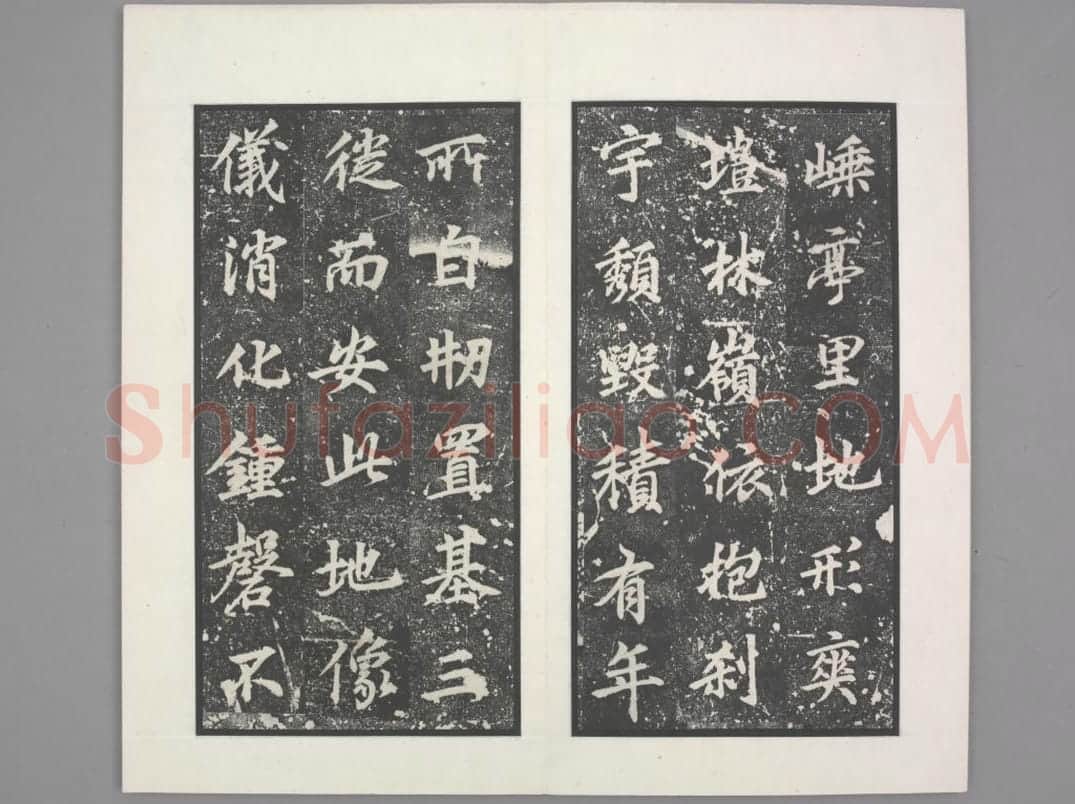 嵊亭里地形爽
塏林嶺依抱刹
宇頽毀積有年
所自刱置基三
從而安此地像
儀消化鍾磬不
Shufaziliao.COM